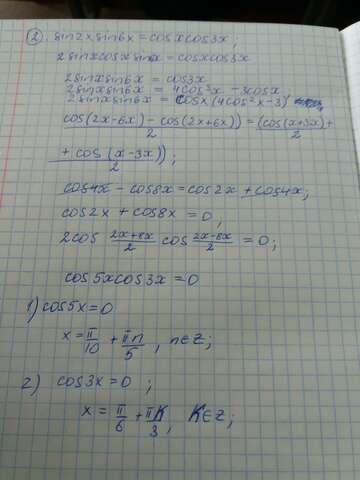 2. sin2xsin6x = cosxcos3x;
2sinxcosx sin6x = cosxcos3x
2sinxsin6x = cos3x
2sinxsin6x = 4cos³x - 3cosx
2sinxsin6x = cosx(4cos²x-3)
cos(2x-6x) - cos(2x+6x))/2 = (cos(x+3x)+/2
+ cos(x-3x))/2;
cos4x - cos8x = cos2x + cos4x;
cos2x + cos8x = 0;
2cos (2x+8x)/2 cos (2x-8x)/2 = 0;
cos5xcos3x = 0
1) cos5x = 0
x = π/10 + πn/5, n∈Z;
2) cos3x = 0 ;
x = π/6 + πK/3, K∈Z;